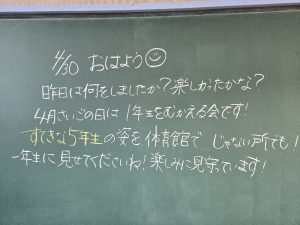 4/30 おはよう
昨日は何をしましたか？楽しかったかな？
4月さいごの日は1年生をむかえる会です！
すてきな5年生の姿を体育館で…じゃない所でも！
一年生に見せてくださいね！楽しみに見守っています！